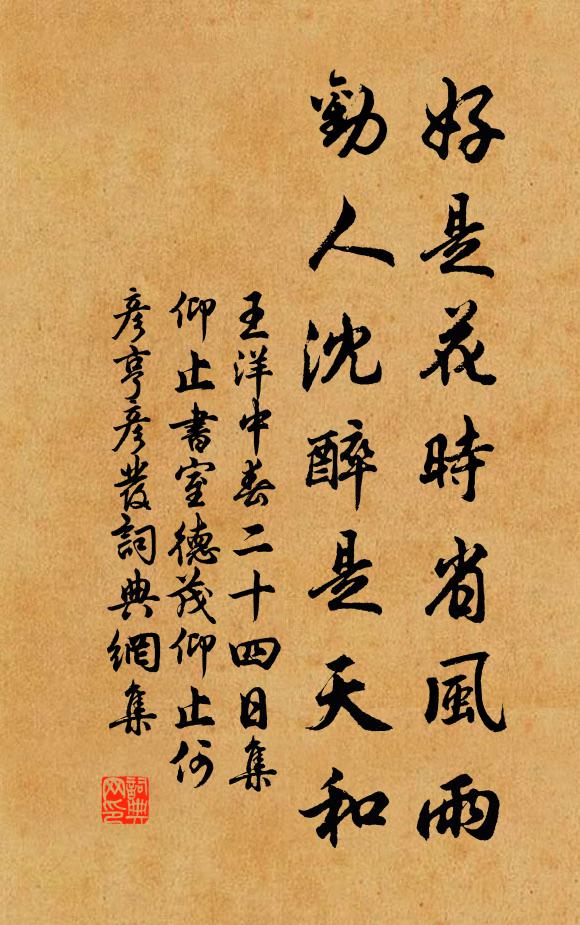 好是花時省風雨
勸人沈醉是天和
王洋中春二十四日集
仰止書室德茂仰止何
彥亨彥發詞典網集
詞典網印